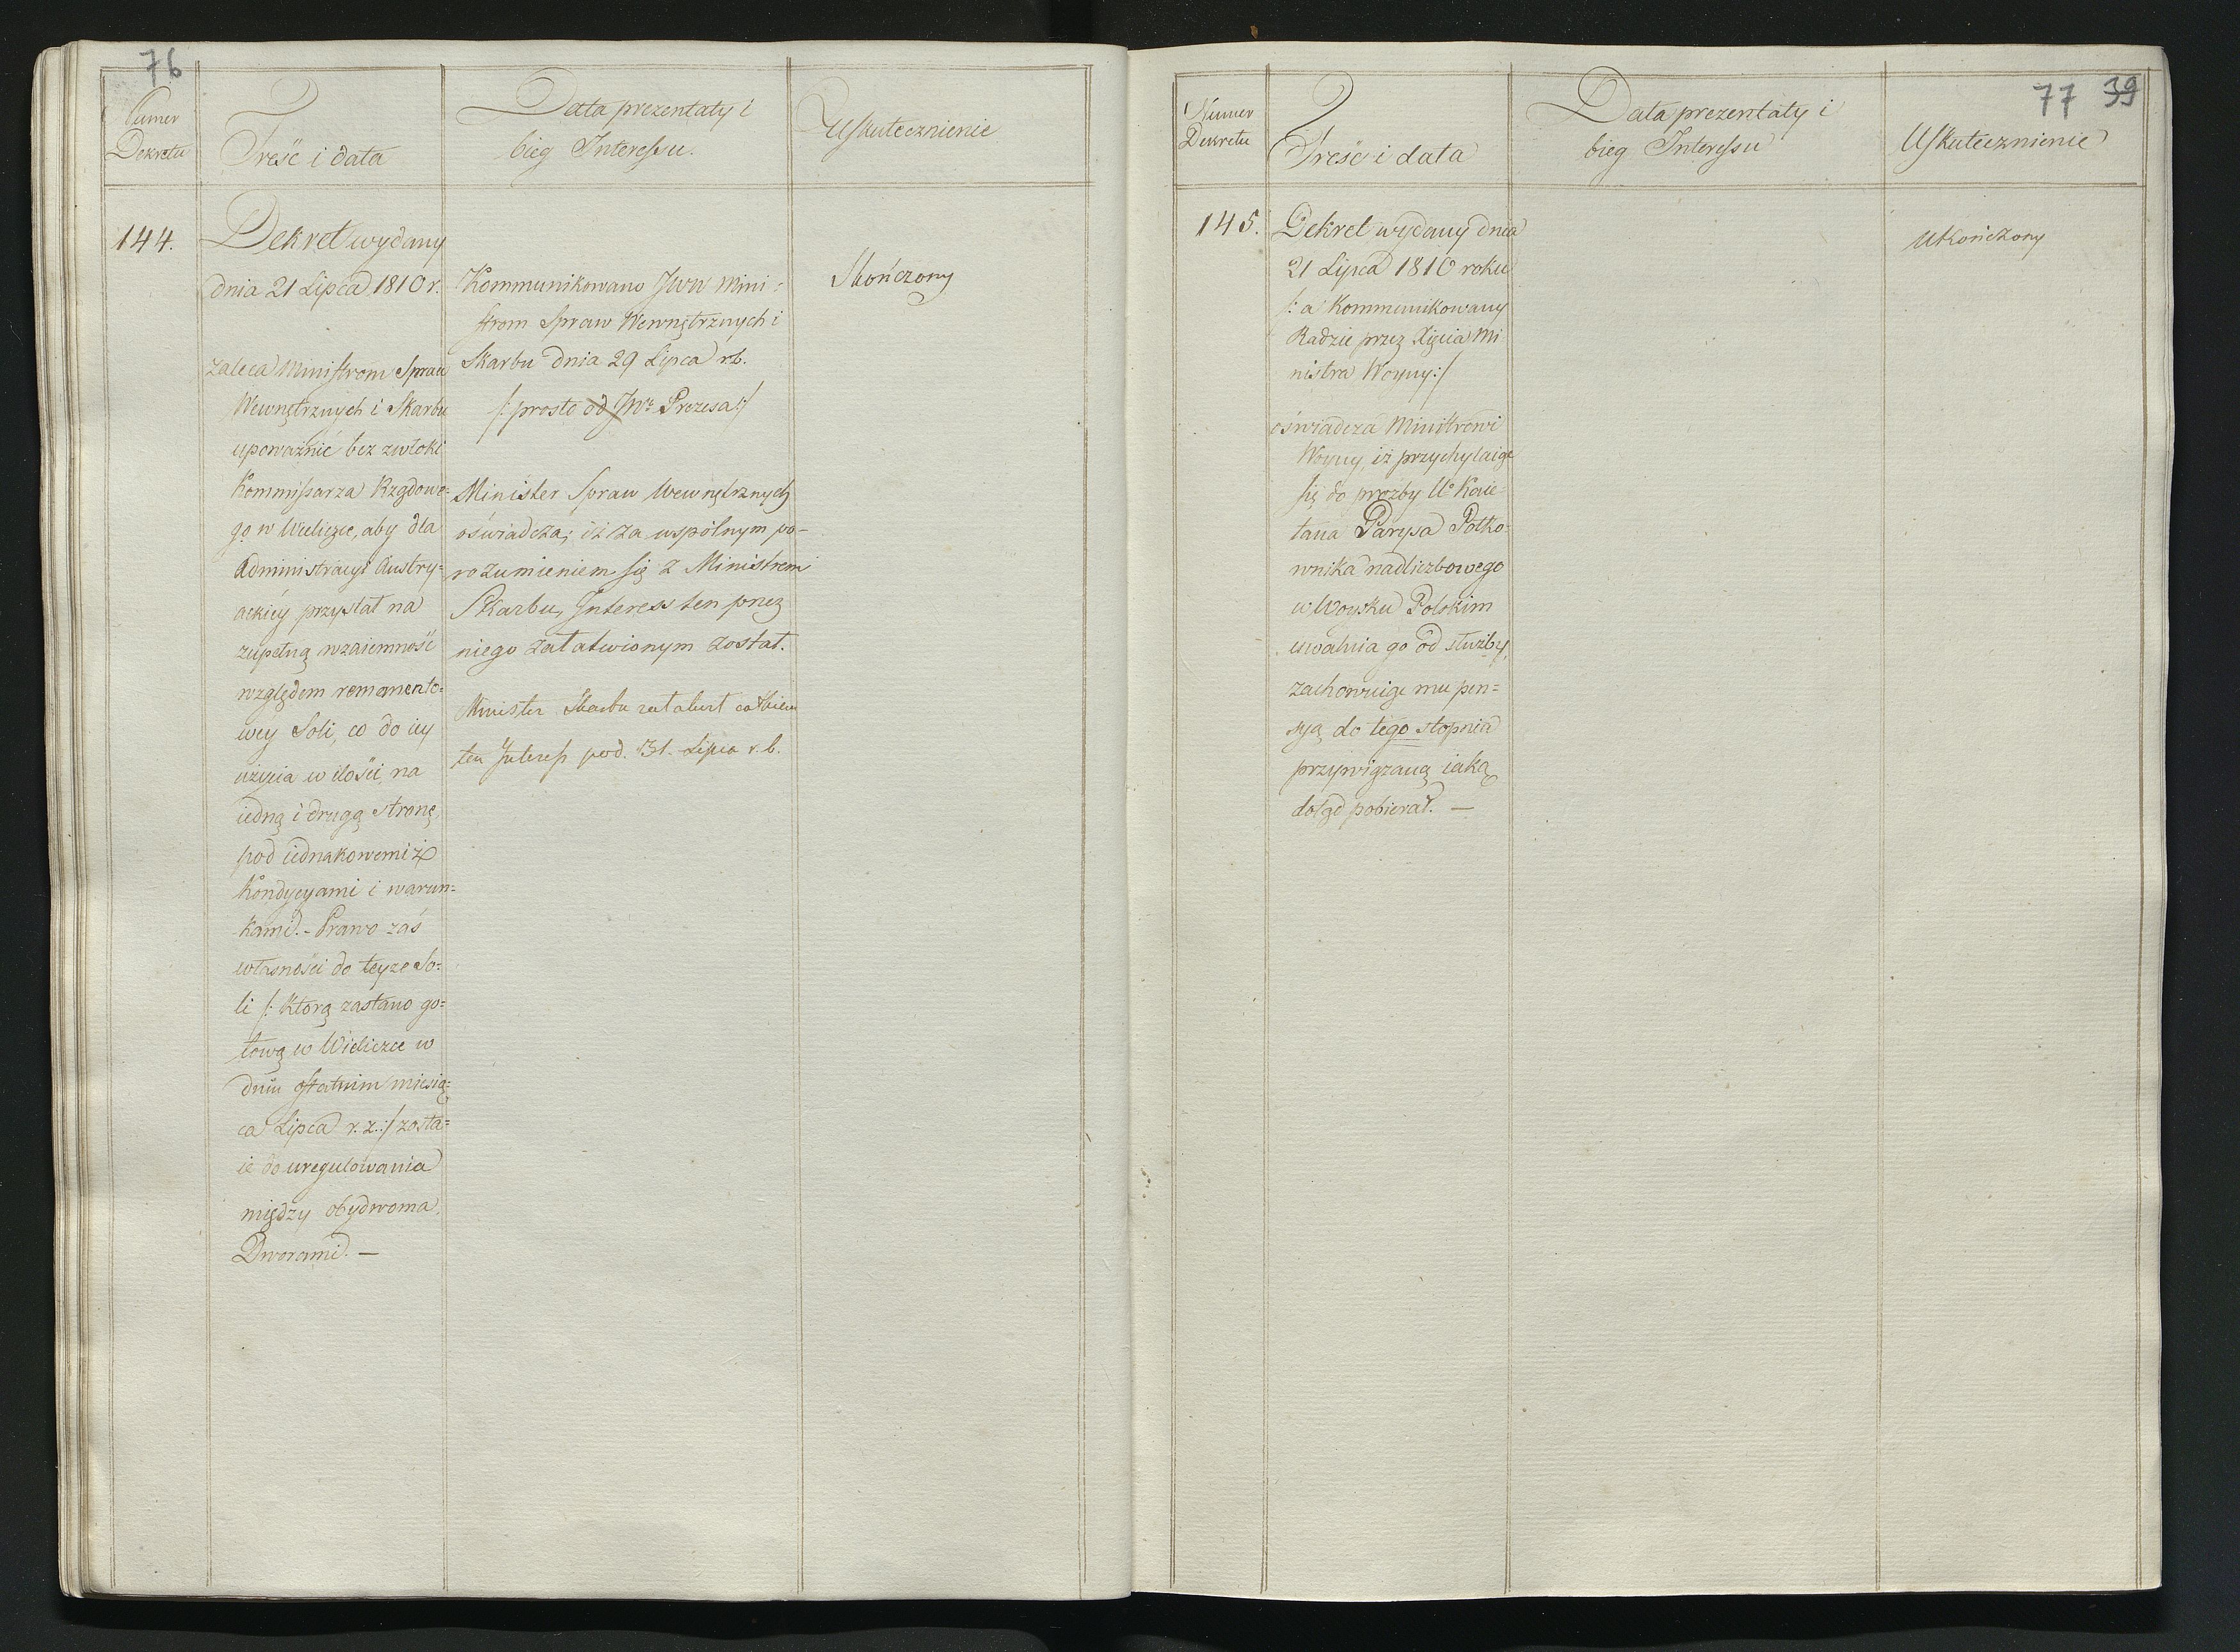 76
Numer
Dekretu
Treść i data
Data prezentaty i
bieg Interessu.
Uskutecznienie
144.
Dekret wydany
dnia 21 Lipca 1810 r.
zaleca Ministrom Spraw
Wewnętrznych i Skarbu
upoważnić bez zwłoki
Kommissarza Rządowe=
go w Wieliczce, aby dla
Administracyi Austry=
ackiey przystał na
zupełną wzaiemność
względem remanento=
wéy Soli, co do iey
użycia w ilości na
iedną i drugą stronę,
pod iednakowemiż
Kondycyami i warun=
kami. - Prawo zaś
własności do teyże So=
li /: którą zastano go=
tową w Wieliczce w
dniu ostatnim miesią=
ca Lipca r. z. :/ zosta=
ie do uregulowania
między obydwoma
Dworami. —
Kommunikowano JWW Mini=
strom Spraw Wewnętrznych i
Skarbu dnia 29 Lipca rb.
/: prosto od JWo Prezesa :/
Minister Spraw Wewnętrznych
oświadcza, iż za wspólnym po-
rozumieniem się z Ministrem
Skarbu, Interess ten przez
niego załatwionym został.
Minister Skarbu załatwił
ten Interess pod. 31. Lipca r. b.
Skończony
77 39
Numer
Dekretu
Treść i data
Data prezentaty i
bieg Interessu
Uskutecznienie
145.
Dekret wydany dnia
21 Lipca 1810 roku
/: a Kommunikowany
Radzie przez Xięcia Mi
nistra Woyny :/
oświadcza Ministrowi
Woyny, iż przychylaiąc
się do prożby Wo Kaie=
tana Parysa Półko=
wnika nadliczbowego
w Woysku Polskim
uwalnia go od służby,
zachowuiąc mu pen=
syą do tego stopnia
przywiązaną iaką
dotąd pobierał. —
Ukończony